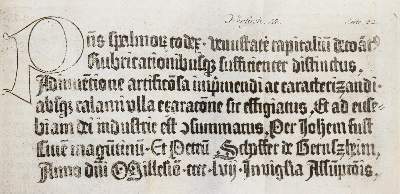 Pn̄s spalmoꝝ codex · venustate capitaliū decoratꝰ
Rubricationibusqꝫ sufficienter distinctus,
Adinuentione artificosa imprimendi ac caracterizandi ·
absqꝫ calami vlla exaracōne sic effigiatus, Et ad euse-
biam dei industrie est ɔsummatus, Per Joh̄em fust
Ciuē magūtinū · Et Petrū Schoffer de Gernszheim,
Anno dn̄i Millesiō · cccc · lvij · In vigl̄ia Assūptōis,